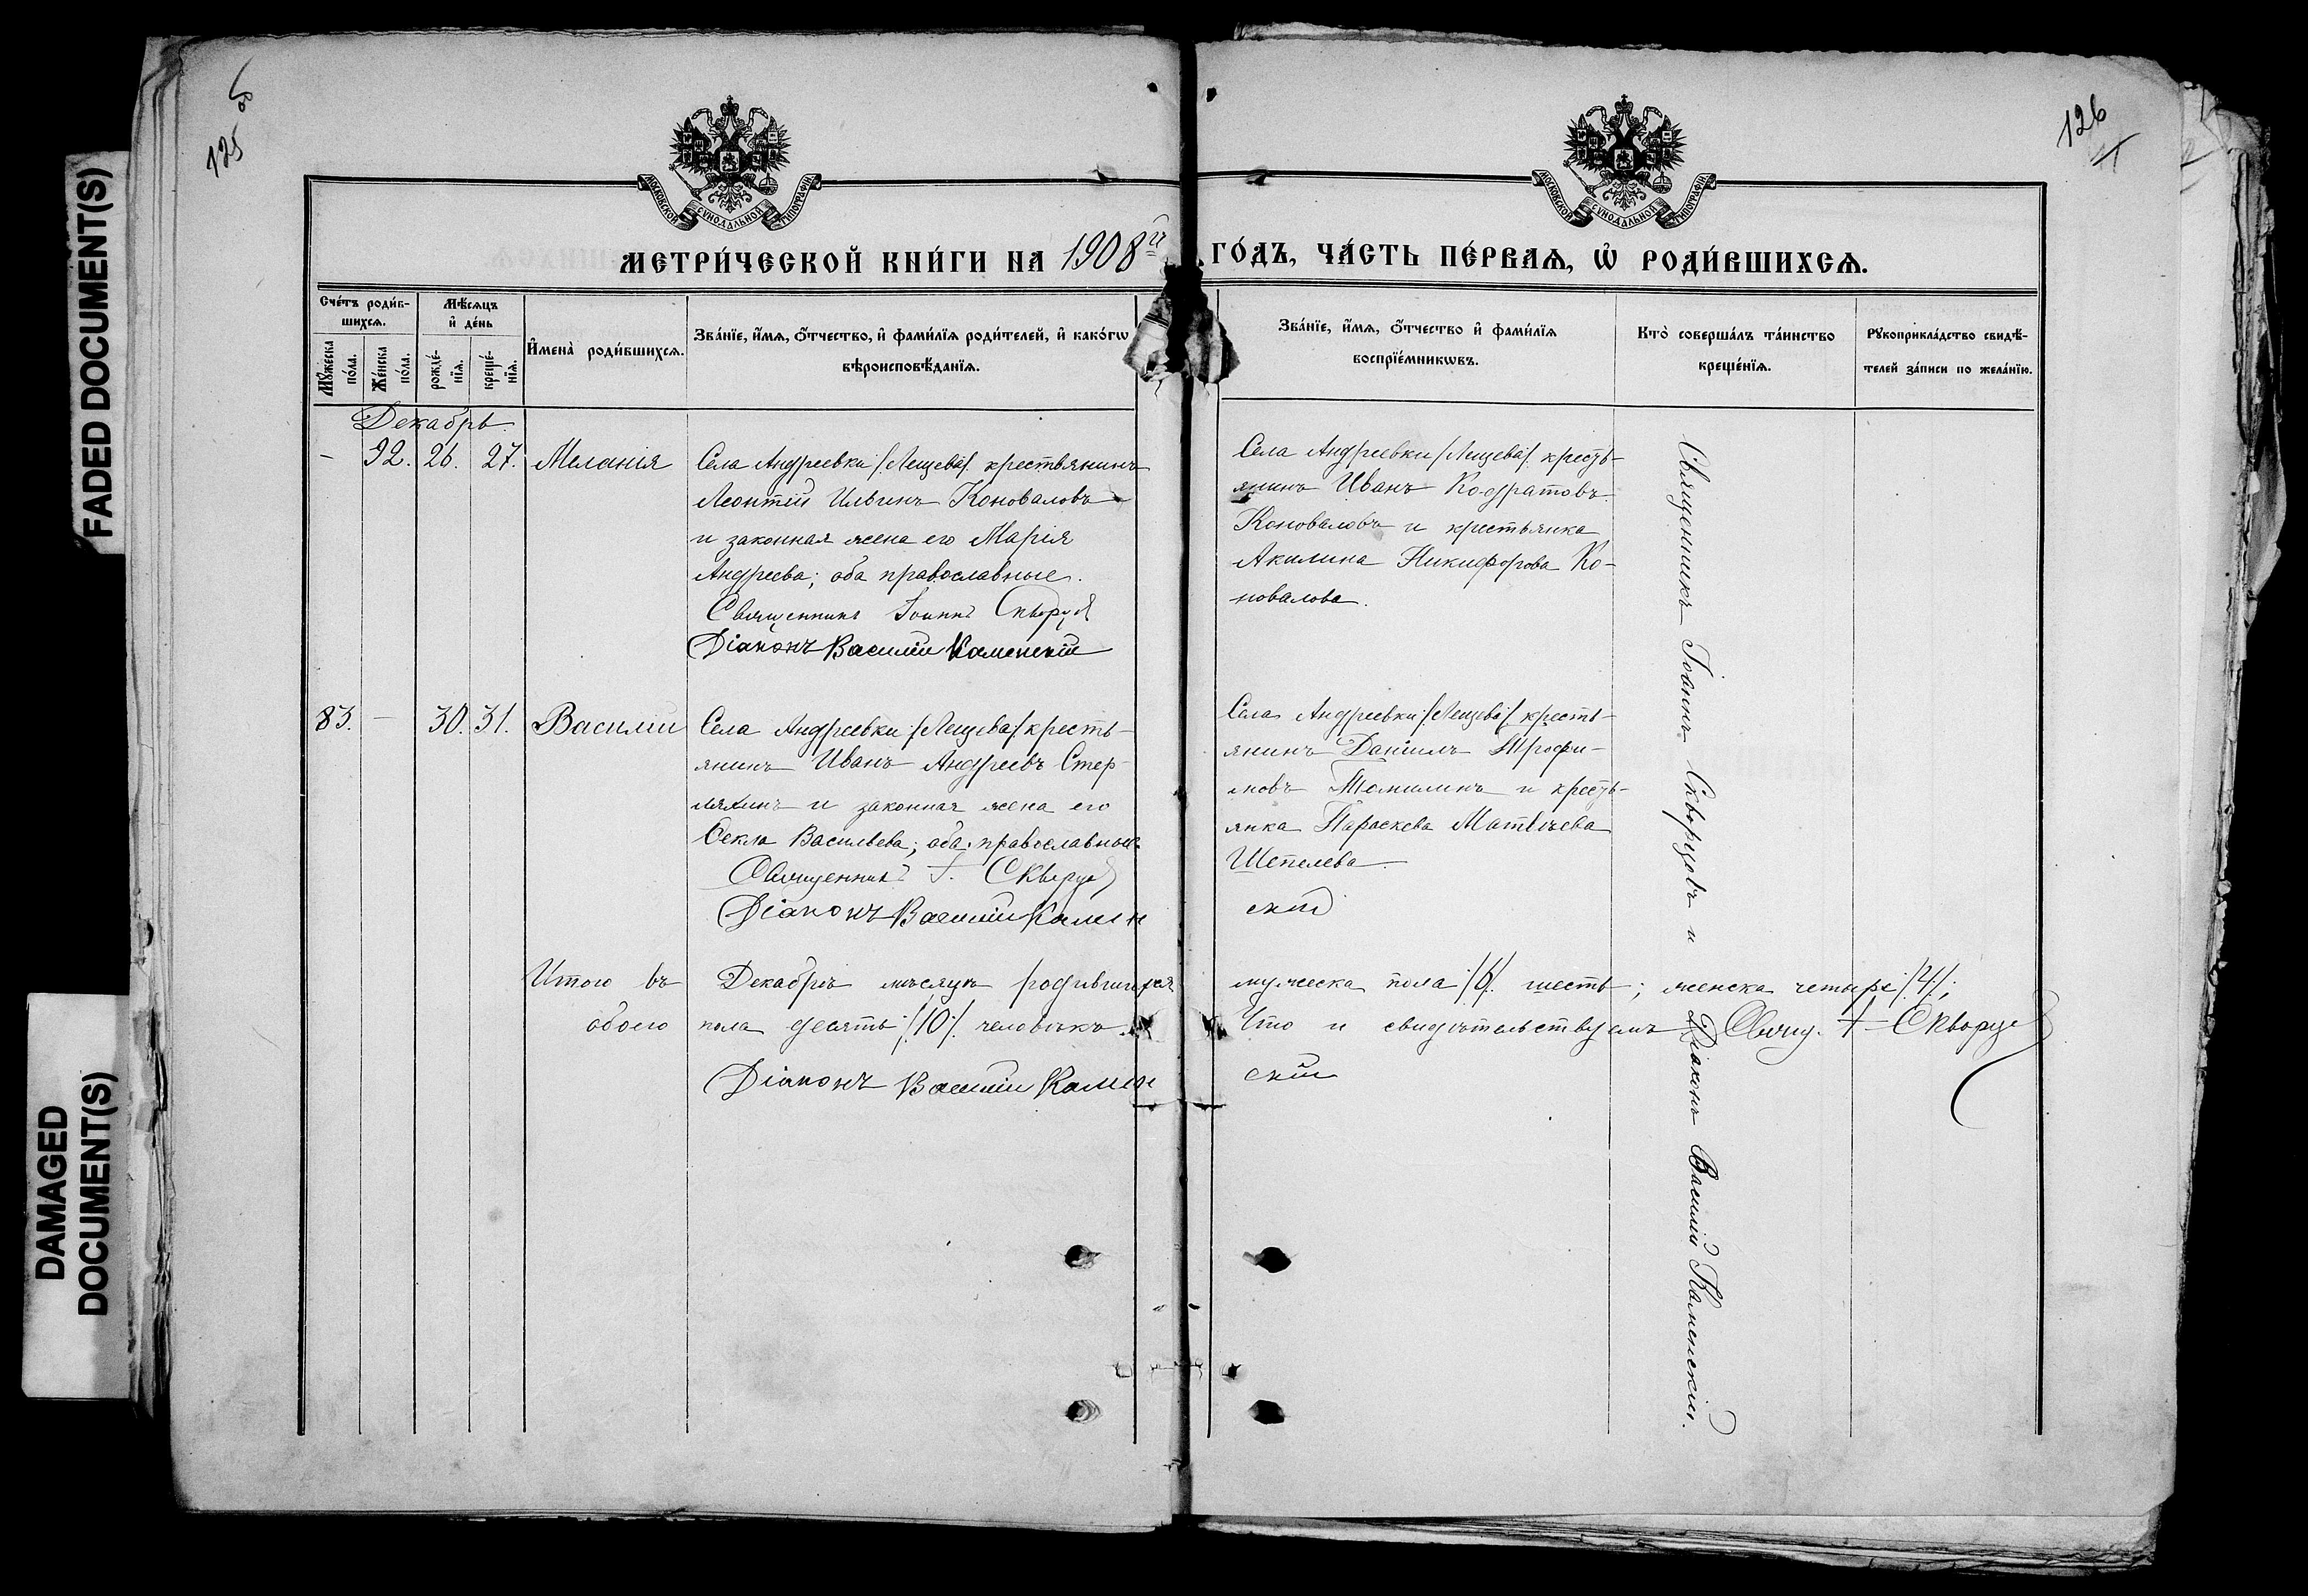 FADED DOCUMENT(S)
DAMAGED
DOCUMENT(S)
125 об
126
МОСКОВСКОЙ СѴНОДАЛЬНОЙ ТИПОГРАФІИ
МОСКОВСКОЙ СѴНОДАЛЬНОЙ ТИПОГРАФІИ
МЕТРИ́ЧЕСКОЙ КНИ́ГИ НА 1908й ГО́ДЪ, ЧА́СТЬ ПЕ́РВАѦ, Ѡ҆ РОДИ́ВШИХСѦ.
Сче́тъ роди́в-
шихсѧ.
Мꙋ́жеска
по́ла.
Же́нска
по́ла.
Мѣ́сѧцъ
и҆ де́нь
рожде́-
нїѧ.
креще́-
нїѧ.
И҆мена̀ роди́вшихсѧ.
Зва́нїе, и҆́мѧ, ѻ҆́тчество, и҆ фами́лїѧ роди́телей, и҆ како́гѡ
вѣроисповѣ́данїѧ.
Зва́нїе, и҆́мѧ, ѻ҆́тчество и҆ фами́лїѧ
воспрїе́мникѡвъ.
Кто̀ соверша́лъ та́инство
креще́нїѧ.
Рꙋкоприкла́дство свидѣ́-
телей за́писи по жела́нїю.
Декабрь.
- 92. 26. 27. Меланія
Села Андреевки /Лещева/. крестьянинъ
Леонтій Ильинъ Коноваловъ
и законная жена его Марія
Андреева; оба православные.
Священникъ Іоаннъ Скворцов
Діаконъ Василій Каменскій
Села Андреевки /Лещева/. кресть-
янинъ Иванъ Кодратовъ
Коноваловъ и крестьянка
Акилина Никифорова Ко-
новалова.
83. - 30. 31. Василій
Села Андреевки /Лещева/ кресть-
янинъ Иванъ Андреевъ Стер-
ляхинъ и законная жена его
Ѳекла Васильева; оба православные.
Священникъ І. Скворцов
Діаконъ Василій Камен
Села Андреевки /Лещева/ кресть-
янинъ Даніилъ Трофи-
мовъ Томилинъ и кресть-
янка Параскева Матвѣева
Шепелева.
скій
Священникъ Іоаннъ Скворцовъ и Діаконъ Василій Каменскій.
Итого въ Декабрѣ мѣсяцѣ родившихся мужеска пола /6/. шесть; женска четыре /4/.;
обоего пола десять /10/. человѣкъ. Что и свидѣтельствуемъ Свящ. І. Скворцов
Діаконъ Василій Камен скій